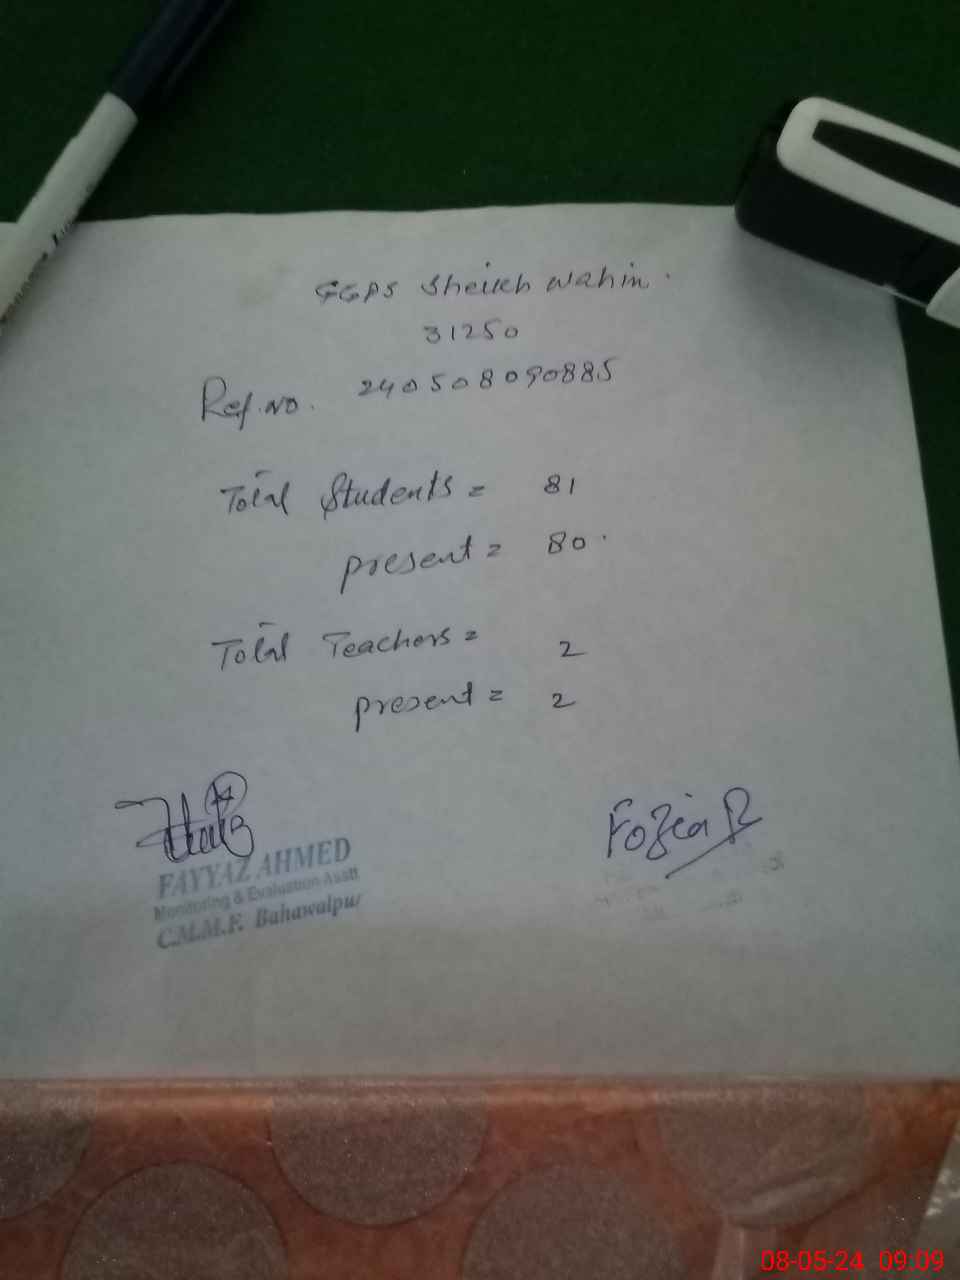 GGPS Sheikh Wahin.
31250
Ref. No. 240508090885
Total Students = 81
present = 80.
Total Teachers = 2
present = 2
Fozia R
FAYYAZ AHMED
Monitoring & Evaluation Asstt
C.M.M.F. Bahawalpur
08-05-24 09:09